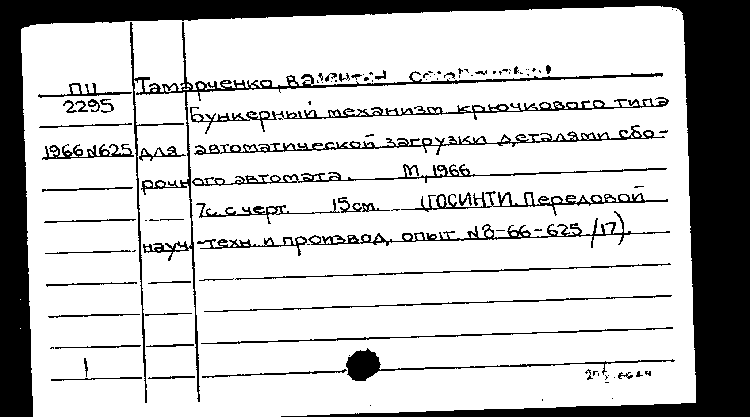 ПЦ Тамарченко, Валентин
2295 Бункерный механизм крючкового типа
1966 №625 для автоматической загрузки деталями сбо-
рочного автомата. М., 1966.
7с. с черт. 15 см. (ГОСИНТИ. Передовой
науч.-техн. и производ. опыт. №8-66-625/17).
1